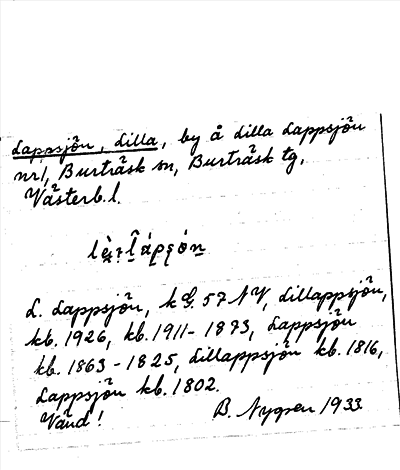 Lappsjön, Lilla, by å Lilla Lappsjön
nr 1, Burträsk sn, Burträsk tg,
Västerb. l.
L. Lappsjön, k G. 57 NV, Lillappsjön,
kb. 1926, kb. 1911-1873, Lappsjön
kb. 1863-1825, Lillappsjön kb. 1816,
Lappsjön kb. 1802.
Vänd! B. Nygren 1933